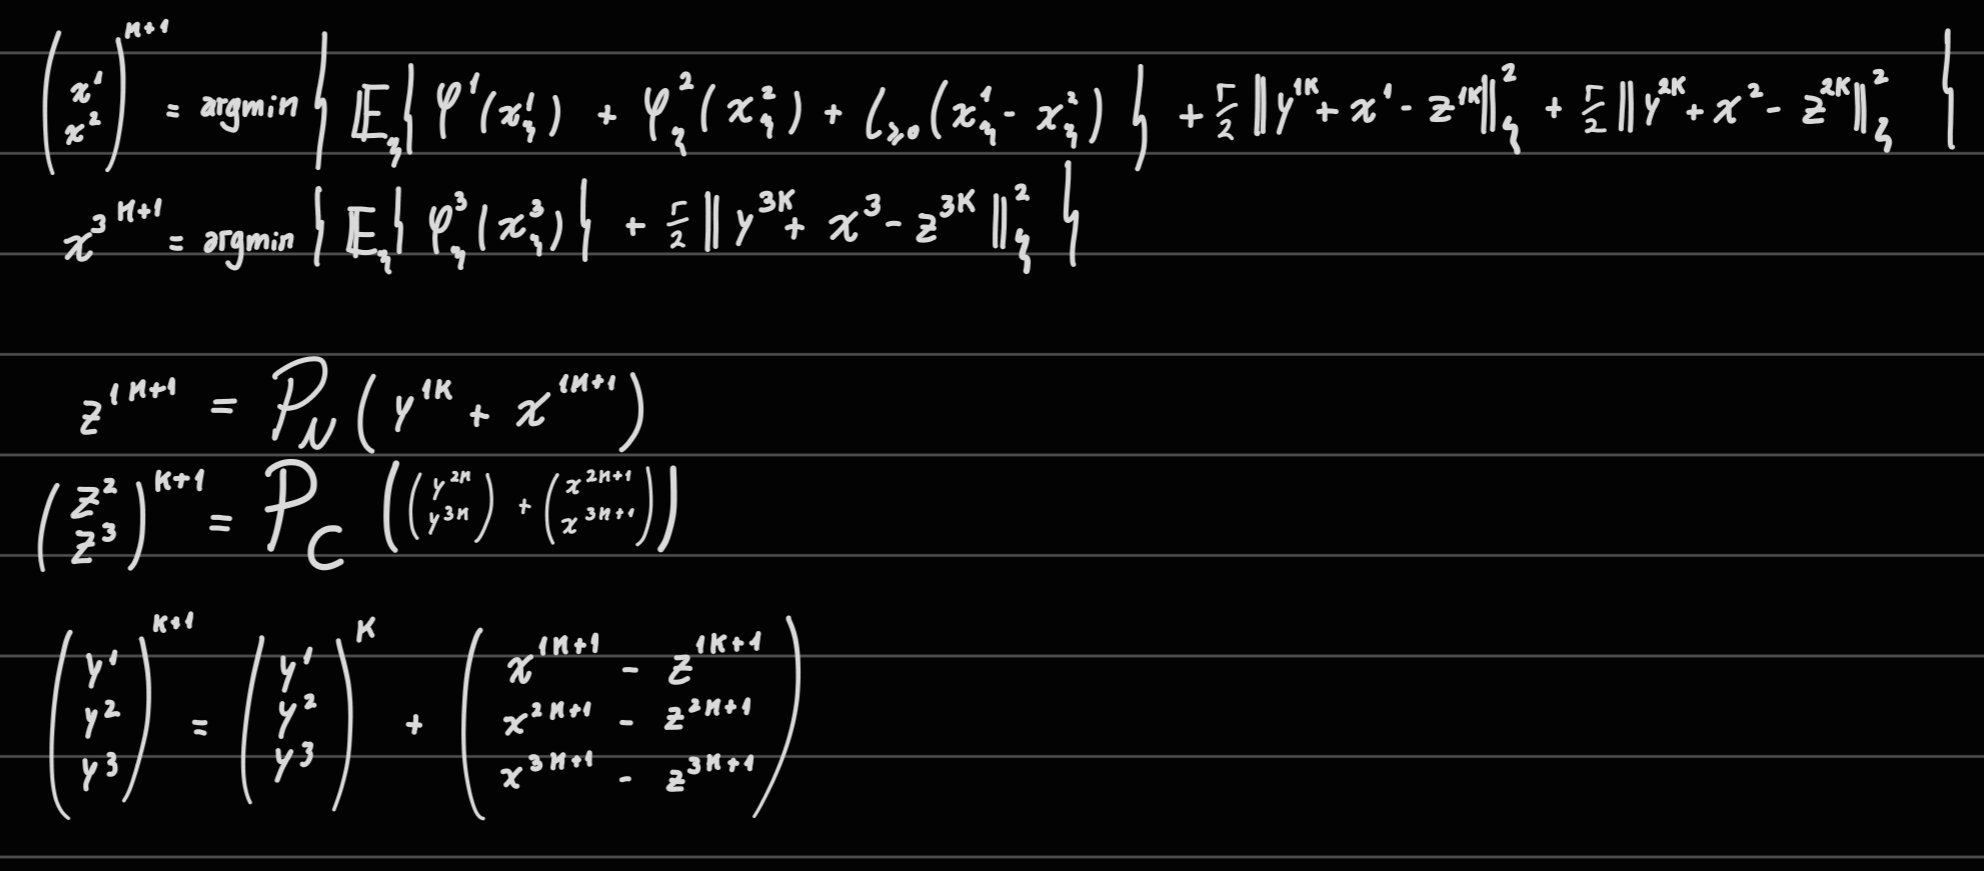 $\begin{pmatrix} x^1 \\ x^2 \end{pmatrix}^{k+1} = \text{argmin} \left\{ \mathbb{E}_\xi \left\{ \varphi^1(x^1_\xi) + \varphi^2_\xi(x^2_\xi) + \iota_{\geq 0}(x^1_\xi - x^2_\xi) \right\} + \frac{r}{2} \| y^{1k} + x^1 - z^{1k} \|^2_\xi + \frac{r}{2} \| y^{2k} + x^2 - z^{2k} \|^2_\xi \right\}$
$x^{3\,k+1} = \text{argmin} \left\{ \mathbb{E}_\xi \left\{ \varphi^3_\xi(x^3_\xi) \right\} + \frac{r}{2} \| y^{3k} + x^3 - z^{3k} \|^2_\xi \right\}$
$z^{1\,k+1} = P_N \left( y^{1k} + x^{1k+1} \right)$
$\begin{pmatrix} z^2 \\ z^3 \end{pmatrix}^{k+1} = P_C \left( \begin{pmatrix} y^{2k} \\ y^{3k} \end{pmatrix} + \begin{pmatrix} x^{2k+1} \\ x^{3k+1} \end{pmatrix} \right)$
$\begin{pmatrix} y^1 \\ y^2 \\ y^3 \end{pmatrix}^{k+1} = \begin{pmatrix} y^1 \\ y^2 \\ y^3 \end{pmatrix}^{k} + \begin{pmatrix} x^{1k+1} - z^{1k+1} \\ x^{2k+1} - z^{2k+1} \\ x^{3k+1} - z^{3k+1} \end{pmatrix}$